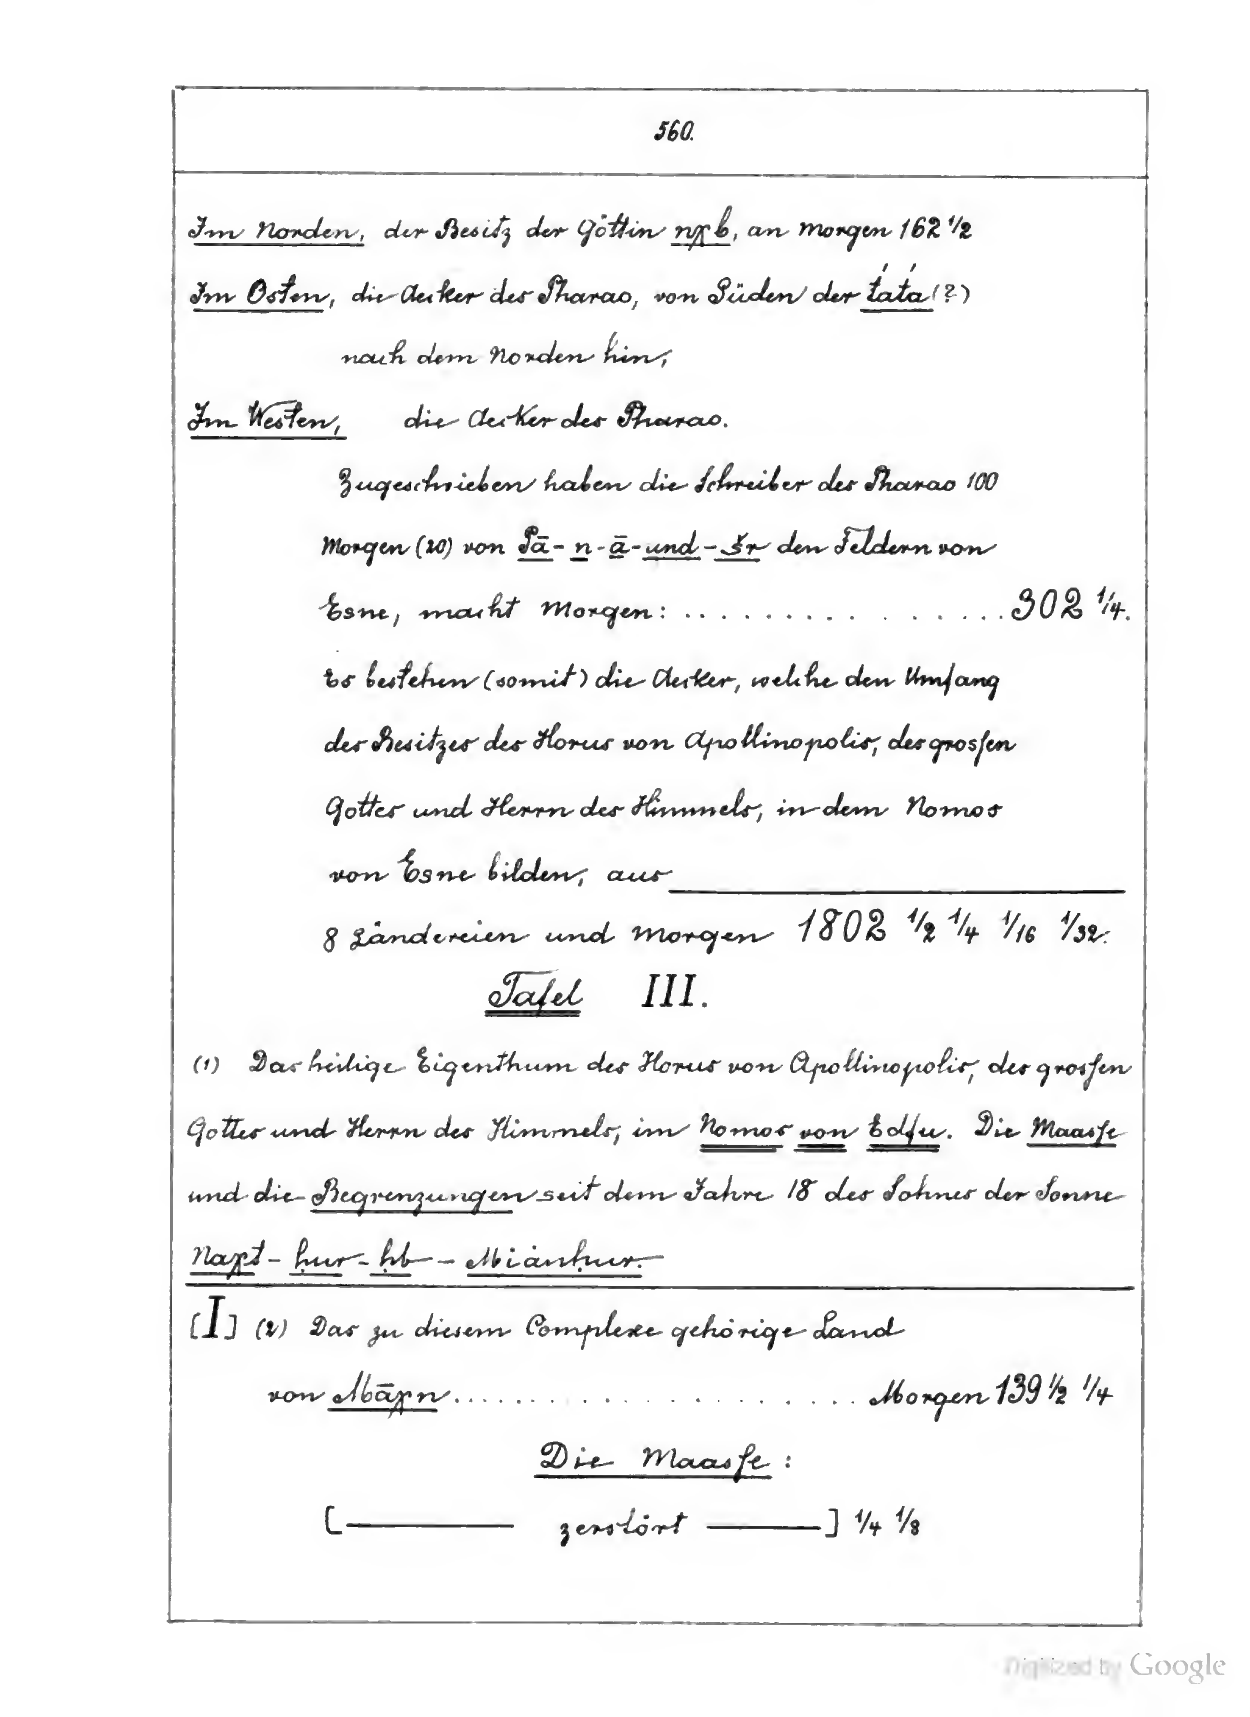 560.
Im Norden, der Besitz der Göttin nχb, an Morgen 162 1/2
Im Osten, die Aecker des Pharao, von Süden der t́at́a (?)
nach dem Norden hin,
Im Westen, die Aecker des Pharao.
Zugeschrieben haben die Schreiber des Pharao 100
Morgen (20) von Pā-n-ā-und-šr den Feldern von
Esne, macht Morgen: ................ 302 1/4.
Es bestehen (somit) die Aecker, welche den Umfang
des Besitzes des Horus von Apollinopolis, des grossen
Gottes und Herrn des Himmels, in dem Nomos
von Esne bilden, aus
8 Ländereien und Morgen 1802 1/2 1/4 1/16 1/32.
Tafel III.
(1) Das heilige Eigenthum des Horus von Apollinopolis, des grossen
Gottes und Herrn des Himmels, im Nomos von Edfu. Die Maasse
und die Begrenzungen seit dem Jahre 18 des Sohnes der Sonne
Naχt-ḥur-ḥb-Miȧnḥur.
[I] (2) Das zu diesem Complexe gehörige Land
von Māχn .................... Morgen 139 1/2 1/4
Die Maasse:
[——— zerstört ———] 1/4 1/8
Digitized by Google